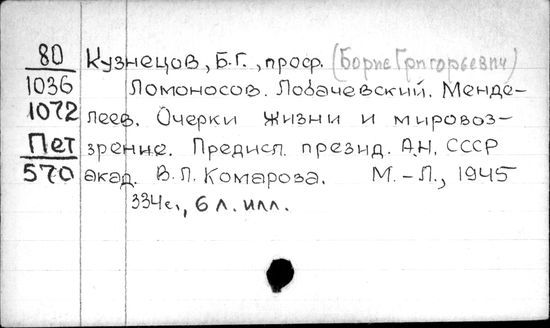 80 Кузнецов, Б.Г., проф. (Борис Григорьевич)
1036 Ломоносов. Лобачевский. Менде-
1072 леев. Очерки жизни и мировоз-
Пет зрение. Предисл. презид. А.Н. СССР
570 акад. В.Л. Комарова. М.-Л., 1945
334с., 6 л. илл.